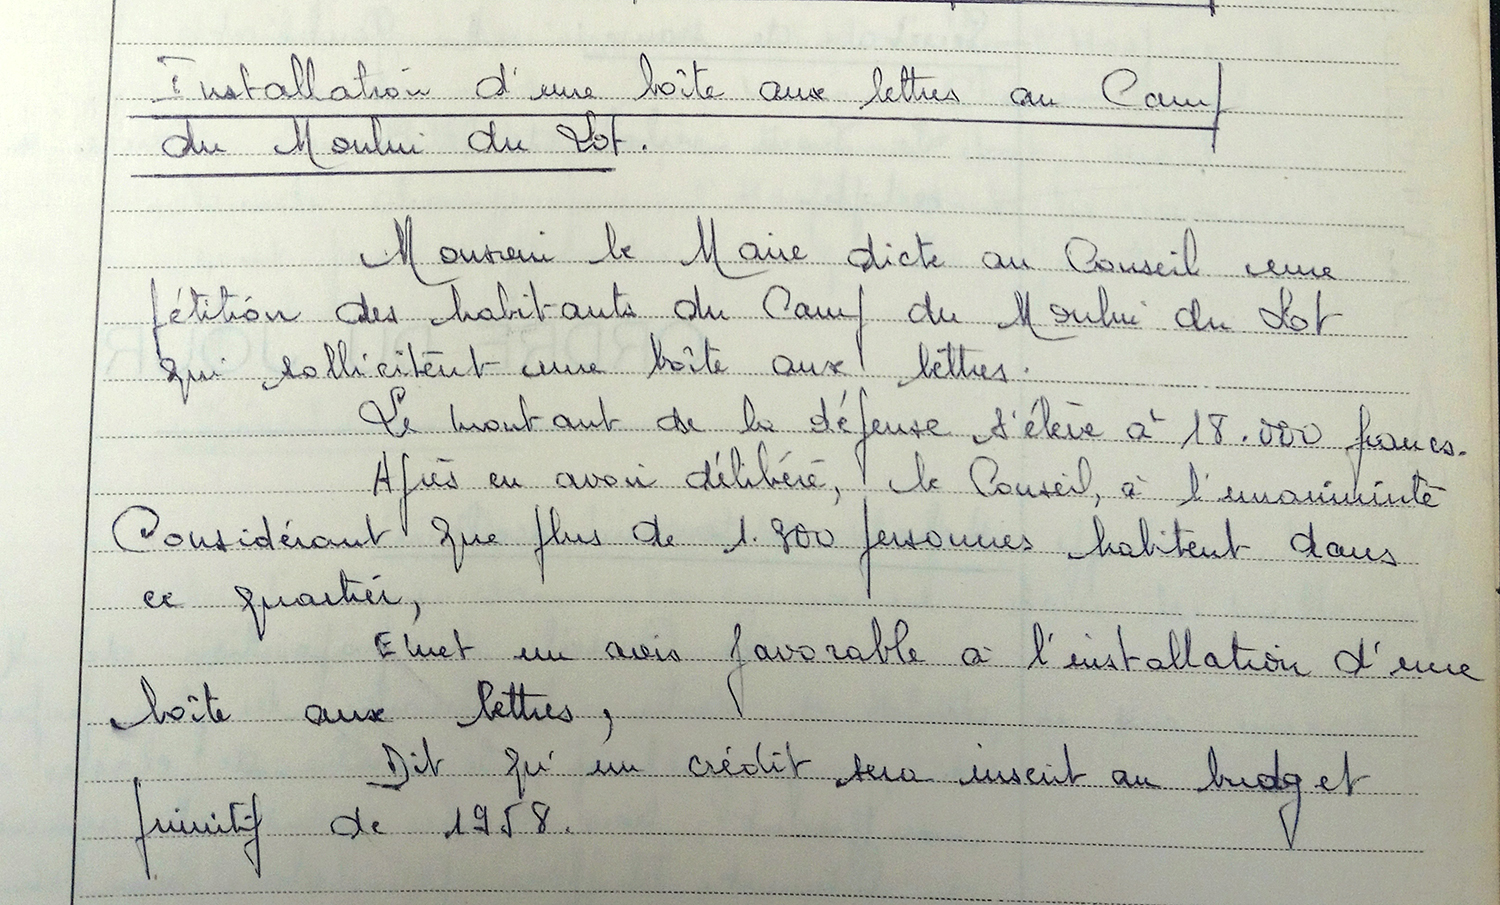 Installation d'une boîte aux lettres au Camp
du Moulin du Lot.
Monsieur le Maire dicte au Conseil une
pétition des habitants du Camp du Moulin du Lot
qui sollicitent une boîte aux lettres.
Le montant de la dépense s'élève à 18.000 francs.
Après en avoir délibéré, le Conseil, à l'unanimité
Considérant que plus de 1.900 personnes habitent dans
ce quartier,
Emet un avis favorable à l'installation d'une
boîte aux lettres,
Dit qu'un crédit sera inscrit au budget
primitif de 1958.